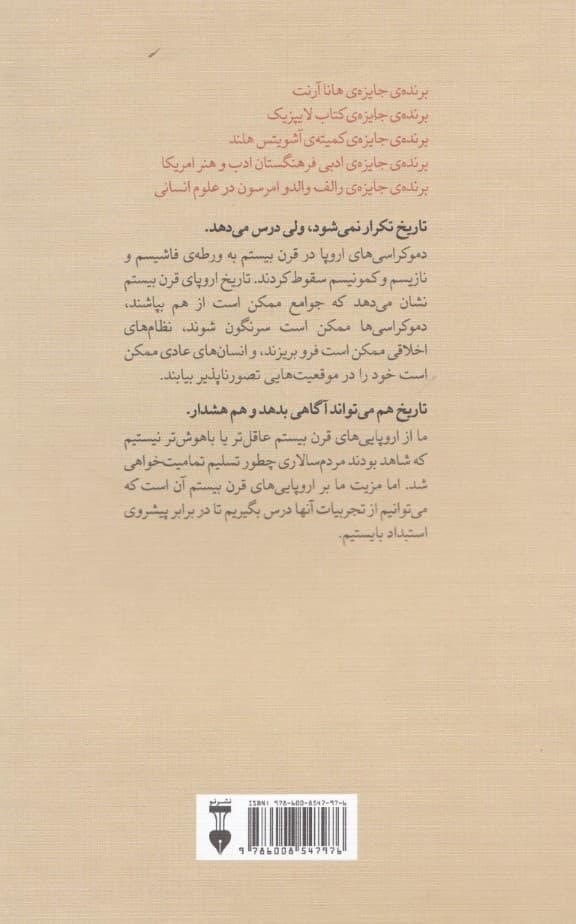 برنده‌ی جایزه‌ی هانا آرنت
برنده‌ی جایزه‌ی کتاب لایپزیک
برنده‌ی جایزه‌ی کمیته‌ی آشویتس هلند
برنده‌ی جایزه‌ی ادبی فرهنگستان ادب و هنر امریکا
برنده‌ی جایزه‌ی رالف والدو امرسون در علوم انسانی
تاریخ تکرار نمی‌شود، ولی درس می‌دهد.
دموکراسی‌های اروپا در قرن بیستم به ورطه‌ی فاشیسم و
نازیسم و کمونیسم سقوط کردند. تاریخ اروپای قرن بیستم
نشان می‌دهد که جوامع ممکن است از هم بپاشند،
دموکراسی‌ها ممکن است سرنگون شوند، نظام‌های
اخلاقی ممکن است فرو بریزند، و انسان‌های عادی ممکن
است خود را در موقعیت‌هایی تصورناپذیر بیابند.
تاریخ هم می‌تواند آگاهی بدهد و هم هشدار.
ما از اروپایی‌های قرن بیستم عاقل‌تر یا باهوش‌تر نیستیم
که شاهد بودند مردم‌سالاری چطور تسلیم تمامیت‌خواهی
شد. اما مزیت ما بر اروپایی‌های قرن بیستم آن است که
می‌توانیم از تجربیات آنها درس بگیریم تا در برابر پیشروی
استبداد بایستیم.
نشر نو
ISBN: 978-600-8547-97-6
9 786008 547976